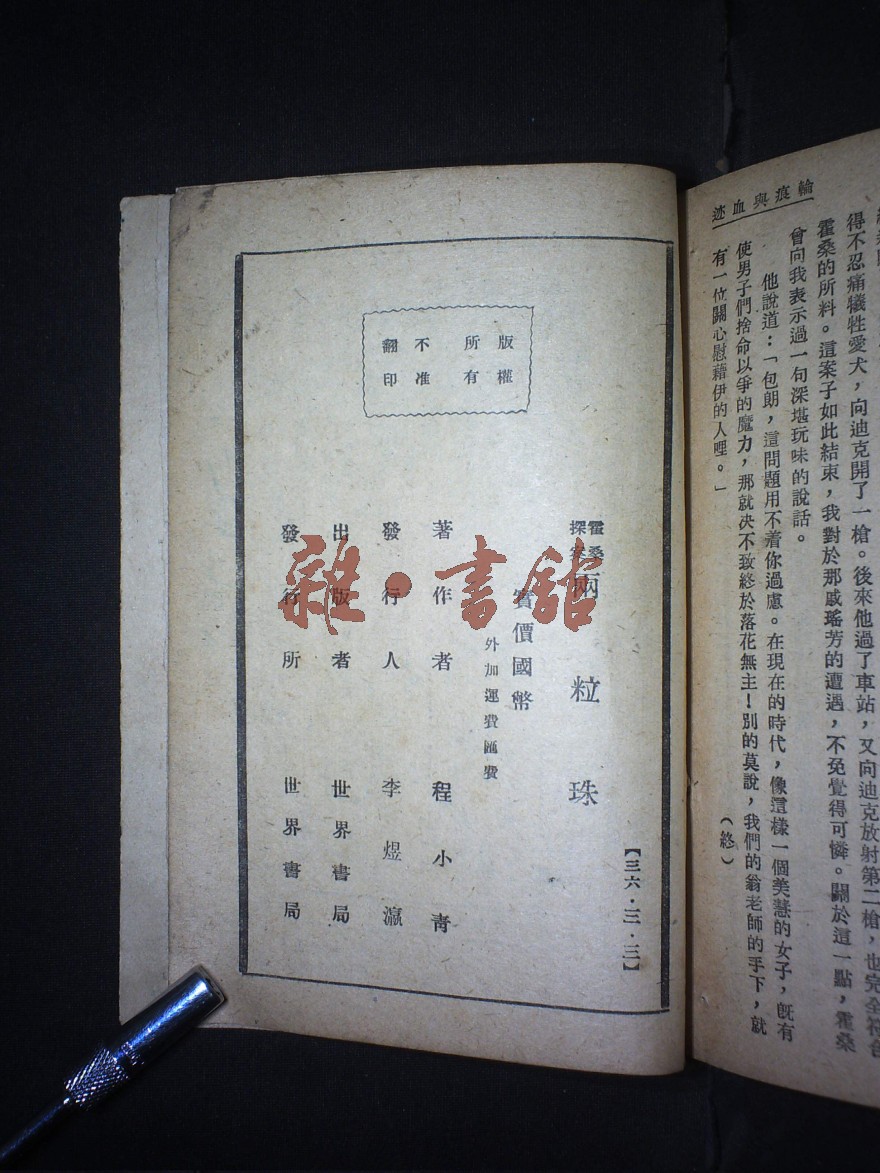 輪痕與血迹
得不忍痛犧牲愛犬，向迪克開了一槍。後來他過了車站，又向迪克放射第二槍，也完全符合
霍桑的所料。這案子如此結束，我對於那戚瑤芳的遭遇，不免覺得可憐。關於這一點，霍桑
曾向我表示過一句深堪玩味的說話。
他說道：「包朗，這問題用不着你過慮。在現在的時代，像這樣一個美慧的女子，旣有
使男子們捨命以爭的魔力，那就决不致終於落花無主！別的莫說，我們的翁老師的手下，就
有一位關心慰藉伊的人哩。」
（終）
版權
所有
不准
翻印
【三六・三・三】
霍桑
探案
兩粒珠
實價國幣
外加運費匯費
著作者 程小青
發行人 李煜瀛
出版者 世界書局
發行所 世界書局
雜・書館